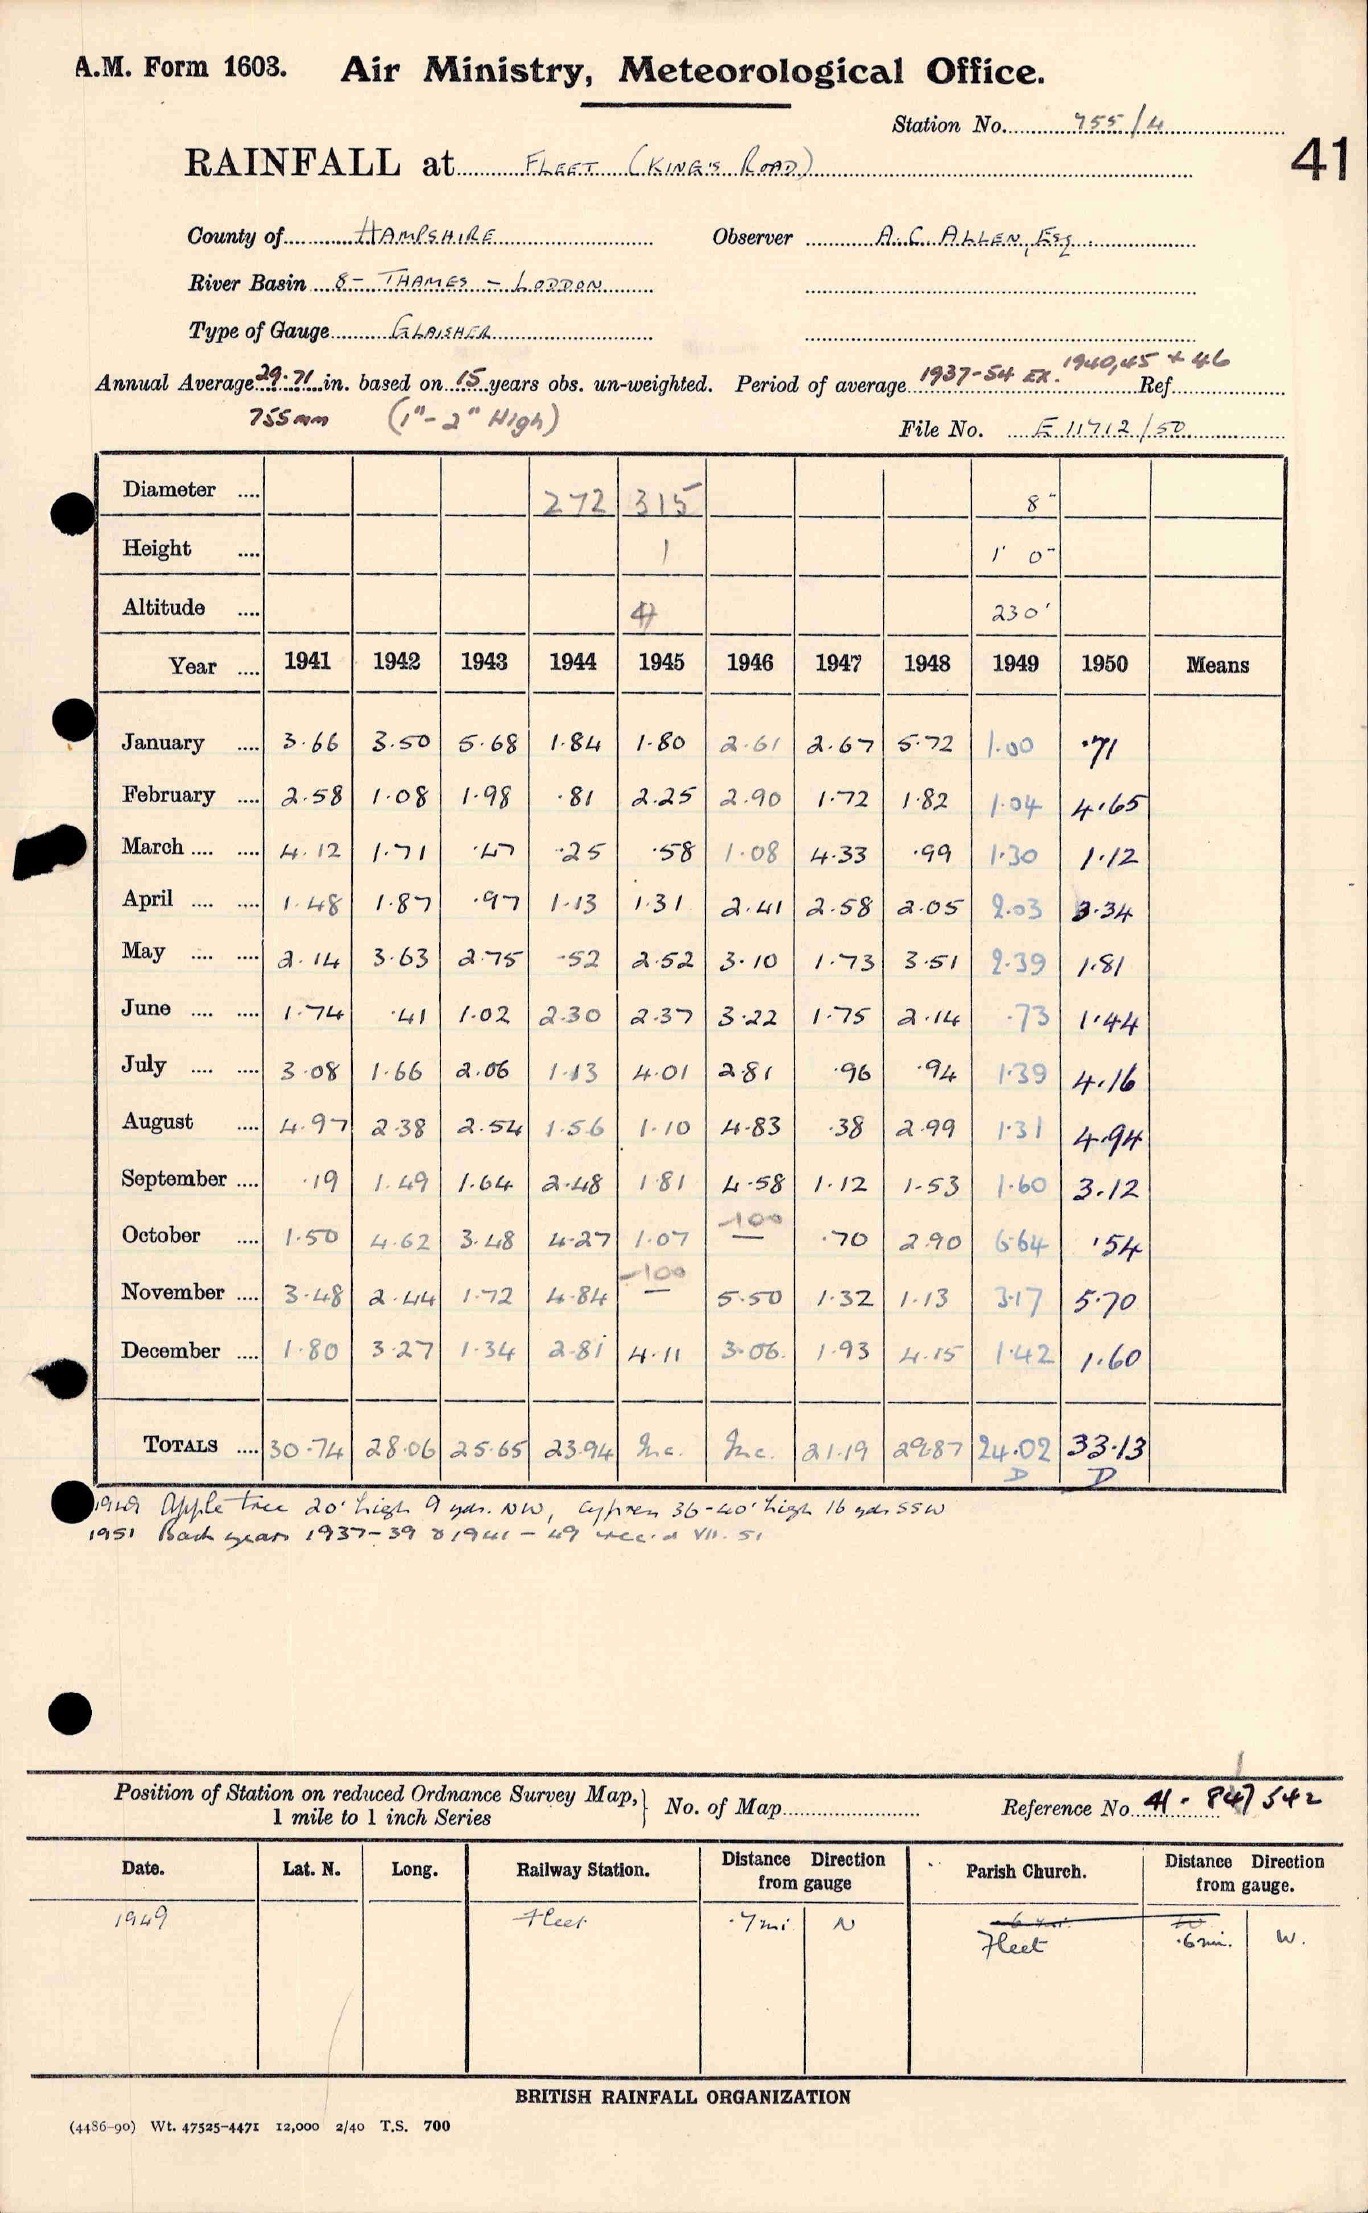 A.M. Form 1603. Air Ministry, Meteorological Office.
Station No. 755/4
41
RAINFALL at FLEET (KING'S ROAD)
County of HAMPSHIRE Observer A.C. ALLEN, Esq.
River Basin 8 - THAMES - LODDON
Type of Gauge GLAISHER
Annual Average 29.71 in. based on 15 years obs. un-weighted. Period of average 1937-54 EX. 1940,45 + 46 Ref.
755mm (1"-2" High)
File No. E 11712/50
Diameter .... 272 315 8"
Height .... 1 1' 0"
Altitude .... 230'
Year .... 1941 1942 1943 1944 1945 1946 1947 1948 1949 1950 Means
January .... 3.66 3.50 5.68 1.84 1.80 2.61 2.67 5.72 1.00 .71
February .... 2.58 1.08 1.98 .81 2.25 2.90 1.72 1.82 1.04 4.65
March .... .... 4.12 1.71 .47 .25 .58 1.08 4.33 .99 1.30 1.12
April .... .... 1.48 1.87 .97 1.13 1.31 2.41 2.58 2.05 2.03 3.34
May .... .... 2.14 3.63 2.75 .52 2.52 3.10 1.73 3.51 2.39 1.81
June .... .... 1.74 .41 1.02 2.30 2.37 3.22 1.75 2.14 .73 1.44
July .... .... 3.08 1.66 2.06 1.13 4.01 2.81 .96 .94 1.39 4.16
August .... 4.97 2.38 2.54 1.56 1.10 4.83 .38 2.99 1.31 4.94
September .... .19 1.49 1.64 2.48 1.81 4.58 1.12 1.53 1.60 3.12
-100
October .... 1.50 4.62 3.48 4.27 1.07 — .70 2.90 6.64 .54
-100
November .... 3.48 2.44 1.72 4.84 — 5.50 1.32 1.13 3.17 5.70
December .... 1.80 3.27 1.34 2.81 4.11 3.06 1.93 4.15 1.42 1.60
TOTALS .... 30.74 28.06 25.65 23.94 Inc. Inc. 21.19 29.87 24.02 33.13
D D
1949 Apple tree 20' high 9 yds. NW, cypress 36-40' high 16 yds SSW
1951 Back years 1937-39 & 1941-49 rec.d VII. 51
Position of Station on reduced Ordnance Survey Map, 1 mile to 1 inch Series } No. of Map Reference No 41 - 847 542
Date. Lat. N. Long. Railway Station. Distance Direction from gauge Parish Church. Distance Direction from gauge.
1949 Fleet .7mi N Fleet .6mi. W.
BRITISH RAINFALL ORGANIZATION
(4486-90) Wt. 47525-4471 12,000 2/40 T.S. 700